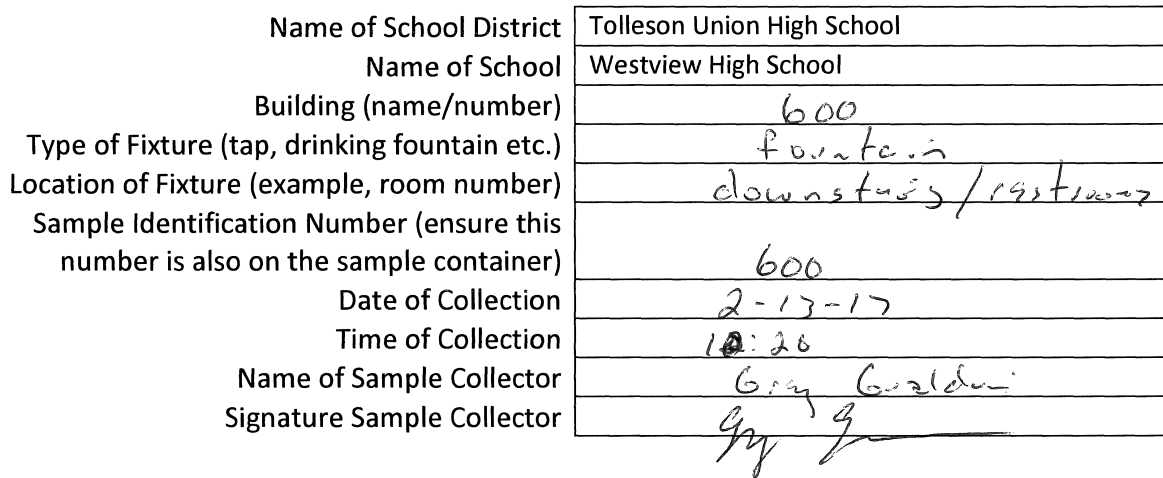 Name of School District Tolleson Union High School
Name of School Westview High School
Building (name/number) 600
Type of Fixture (tap, drinking fountain etc.) fountain
Location of Fixture (example, room number) downstairs/restrooms
Sample Identification Number (ensure this
number is also on the sample container) 600
Date of Collection 2-13-17
Time of Collection
Name of Sample Collector
Signature Sample Collector